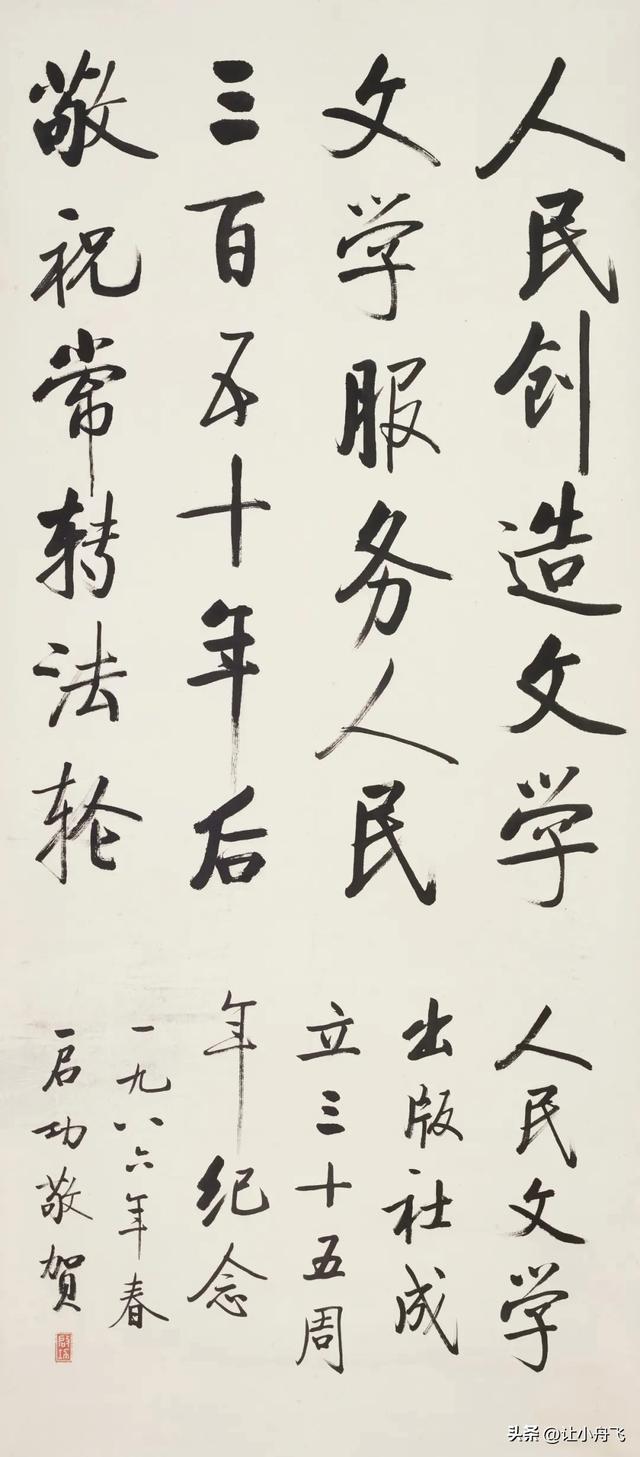 人民创造文学
文学服务人民
三百五十年后
敬祝常转法轮
人民文学
出版社成
立三十五周
年纪念
一九八六年春
启功敬贺
启功
头条 @让小舟飞